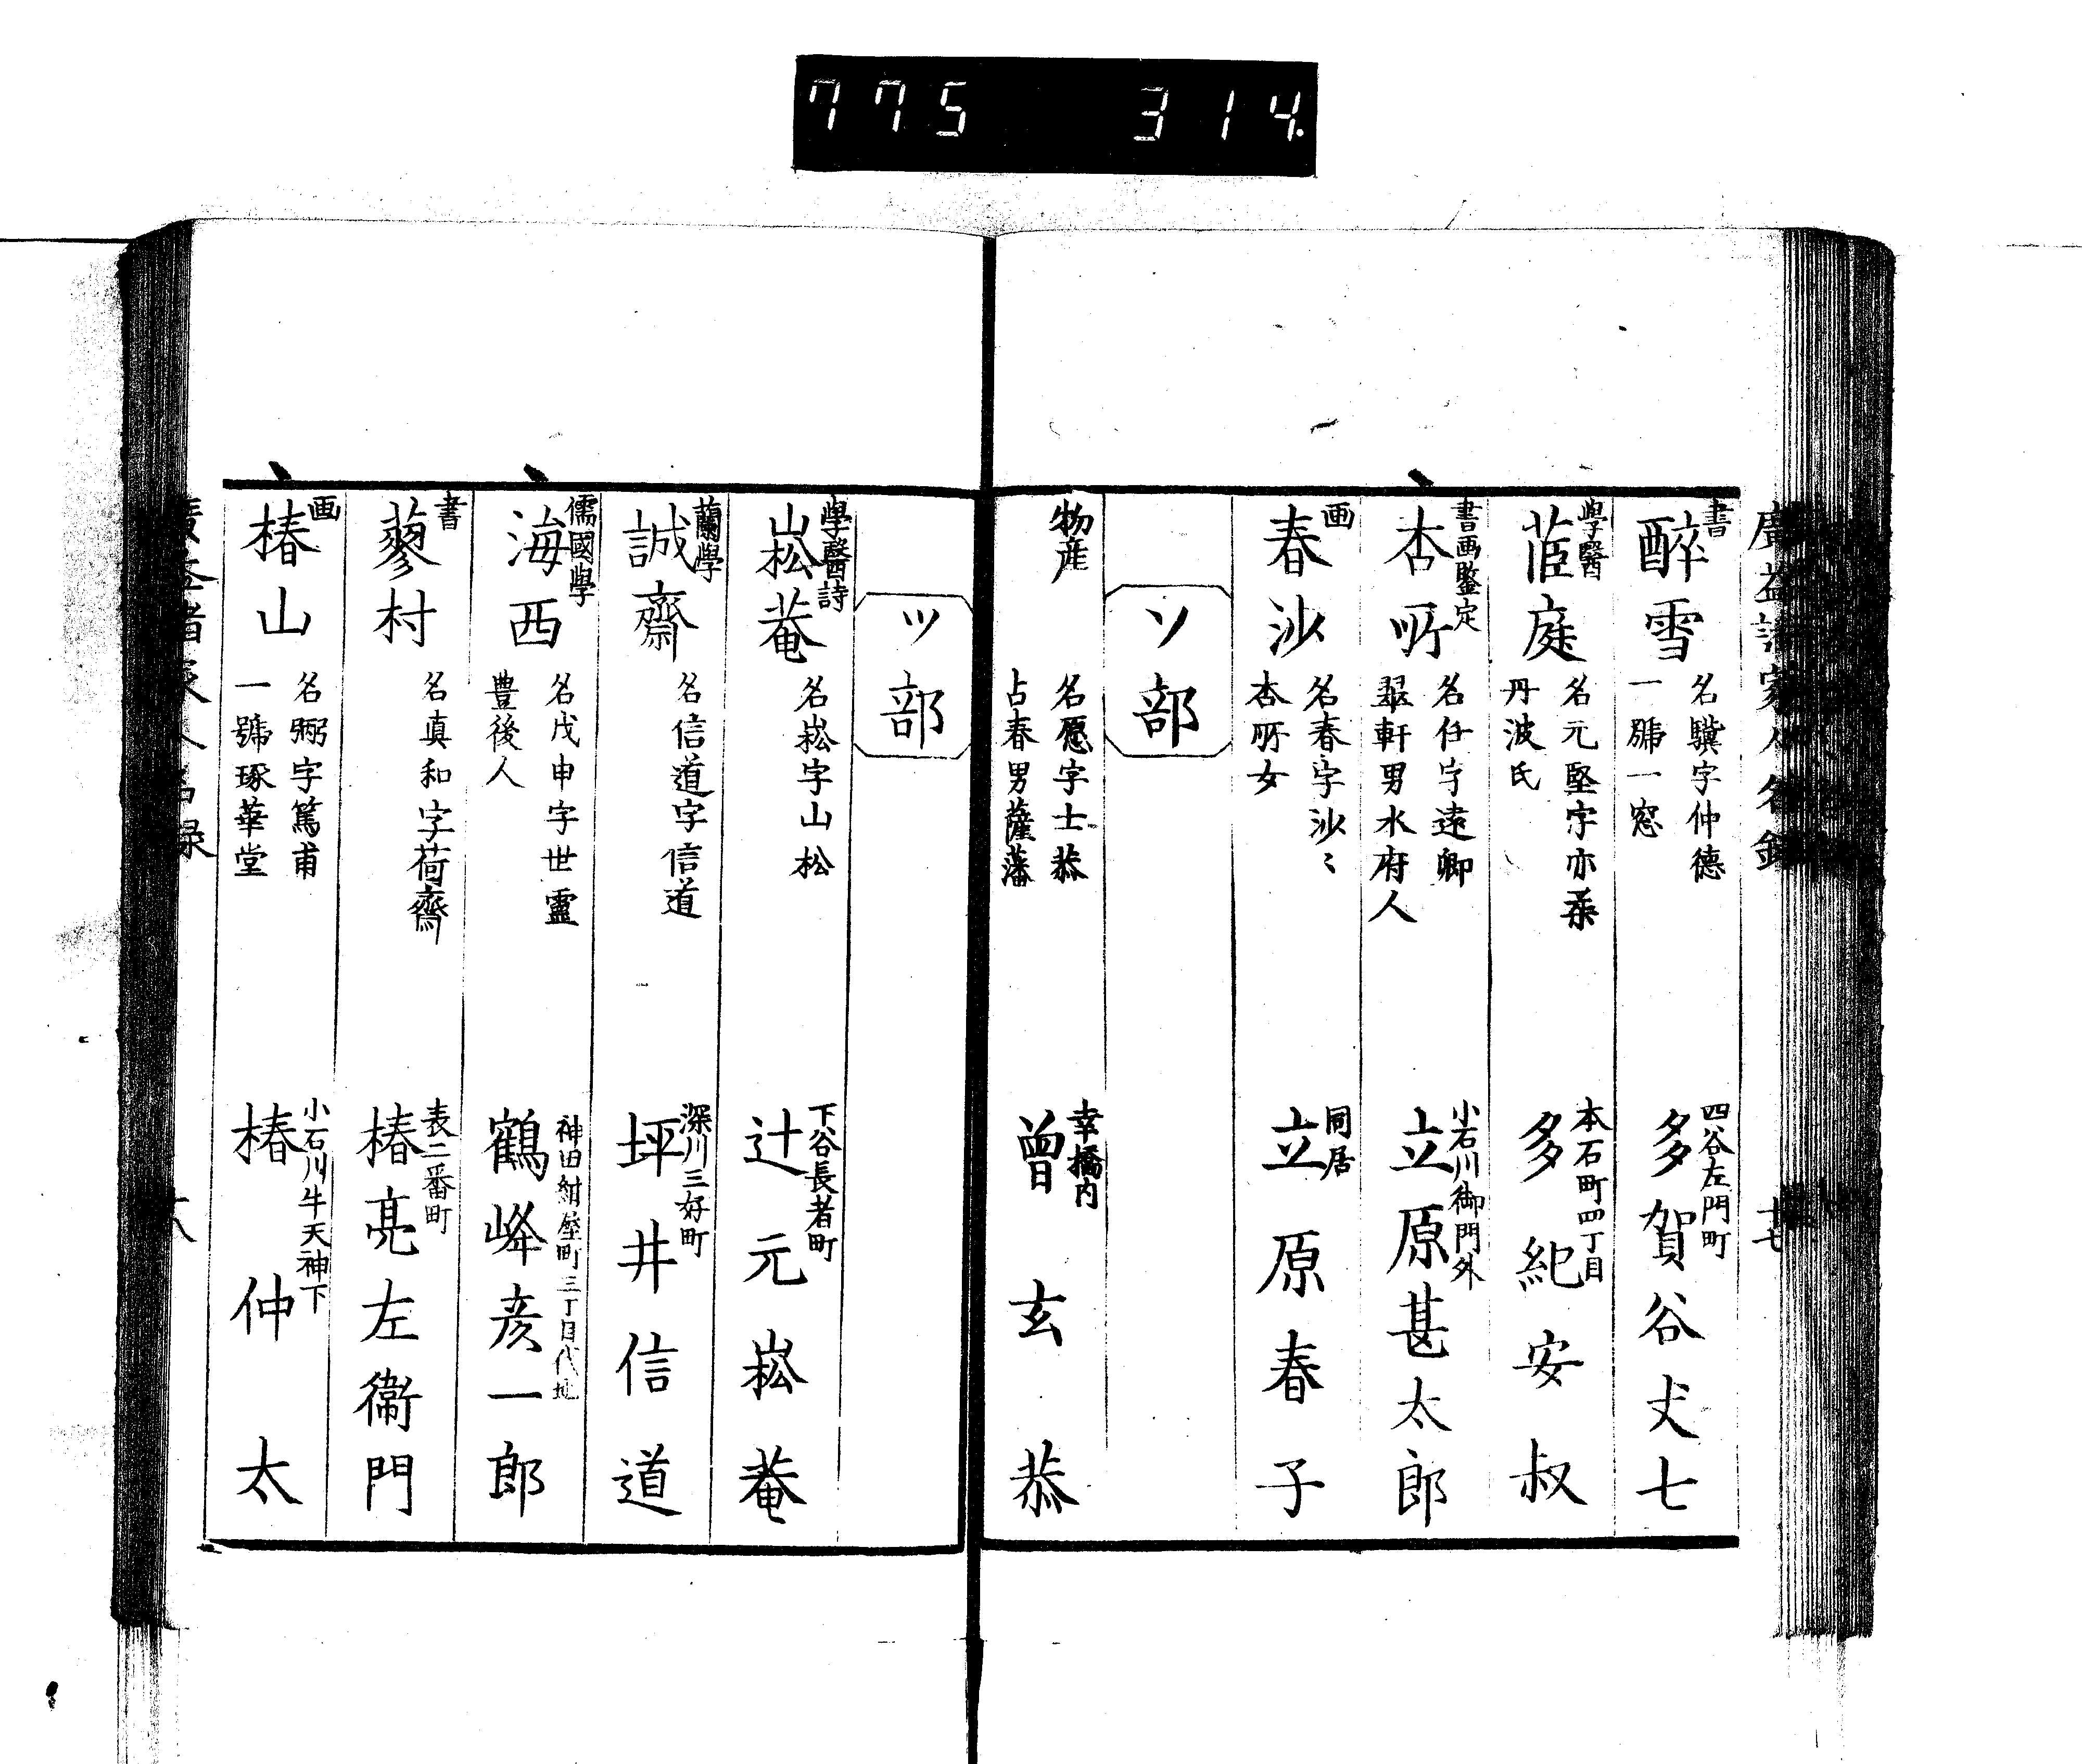 775 314
廣益諸家人名録
十七
書
醉雪
名驥字仲德
一號一窓
四谷左門町
多賀谷丈七
學醫
茝庭
名元堅字亦柔
丹波氏
本石町四丁目
多紀安叔
書画鑒定
杏所
名任字遠卿
翠軒男水府人
小石川御門外
立原甚太郎
画
春沙
名春字沙〻
杏所女
同居
立原春子
ソ部
物産
名愿字士恭
占春男薩藩
幸橋内
曽玄恭
ツ部
學醫詩
崧菴
名崧字山松
下谷長者町
辻元崧菴
蘭學
誠齋
名信道字信道
深川三好町
坪井信道
儒國學
海西
名戊申字世靈
豊後人
神田紺屋町三丁目代地
鶴峰彦一郎
書
蓼村
名真和字荷齋
表二番町
椿亮左衞門
画
椿山
名弼字篤甫
一號琢華堂
小石川牛天神下
椿仲太